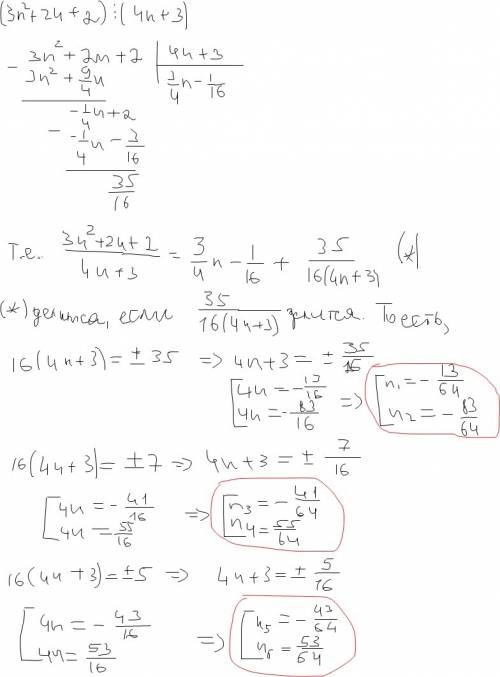 (3n²+2n+2)⋮(4n+3)
- 3n²+2n+2 | 4n+3
3n²+9/4n | 3/4n-1/16
-1/4n+2
- -1/4n-3/16
35/16
Т.е. (3n²+2n+2)/(4n+3) = 3/4n - 1/16 + 35/(16(4n+3)) (*)
(*) делится, если 35/(16(4n+3)) делится. То есть,
16(4n+3)=±35 => 4n+3=±35/16
[4n=-13/16 => [n₁=-13/64
[4n=-83/16 [n₂=-83/64
16(4n+3)=±7 => 4n+3=±7/16
[4n=-41/16 => [n₃=-41/64
[4n=55/16 [n₄=55/64
16(4n+3)=±5 => 4n+3=±5/16
[4n=-43/16 => [n₅=-43/64
[4n=53/16 [n₆=53/64